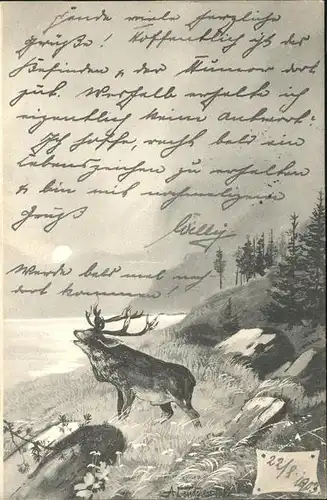 Sende viele herzliche
Grüße! Hoffentlich ist das
Befinden & der Humor dort
gut. Weshalb erhalte ich
eigentlich keine Antwort?
Ich hoffe, recht bald ein
Lebenszeichen zu erhalten
& bin mit nochmaligem
Gruß
Willy
Werde bald mal nach
dort kommen!
22/8.